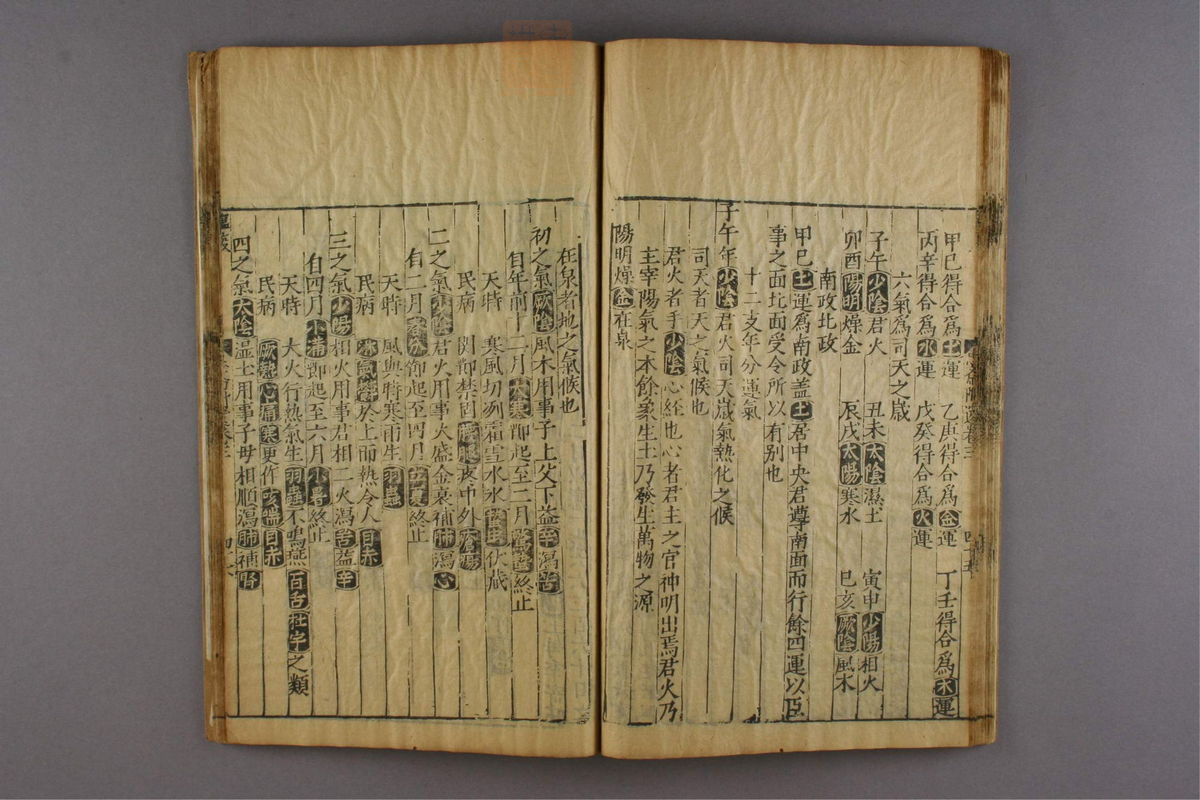 甲己得合爲土運 乙庚得合爲金運 丁壬得合爲木運
丙辛得合爲水運 戊癸得合爲火運
六氣爲司天之歲
子午少陰君火 丑未太陰濕土 寅申少陽相火
卯酉陽明燥金 辰戌太陽寒水 巳亥厥陰風木
南政北政
甲巳土運爲南政盖土居中央君尊南面而行餘四運以臣
事之面北面受令所以有别也
十二支年分運氣
子午年少陰君火司天歲氣熱化之候
司天者天之氣候也
君火者手少陰心經也心者君主之官神明出焉君火乃
主宰陽氣之本餘象生土乃發生萬物之源
陽明燥金在泉
在泉者地之氣候也
初之氣厥陰風木用事子上父下益辛瀉苦
自年前十二月大寒節起至二月驚蟄終止
天時 寒風切冽霜雪水冰蟄虫伏藏
民病 関節禁固腰腿疼中外瘡瘍
二之氣少陰君火用事火盛金衰補肺瀉心
自二月春分節起至四月立夏終止
天時 風與時寒雨生羽蟲
民病 淋氣鬱於上而熱令人目赤
三之氣少陽相火用事君相二火瀉苦益辛
自四月小滿節起至六月小暑終止
天時 大火行熱氣生羽蟲不鳴燕百舌杜宇之類
民病 厥熱心痛寒更作咳喘目赤
四之氣太陰湿土用事子母相順瀉肺補腎